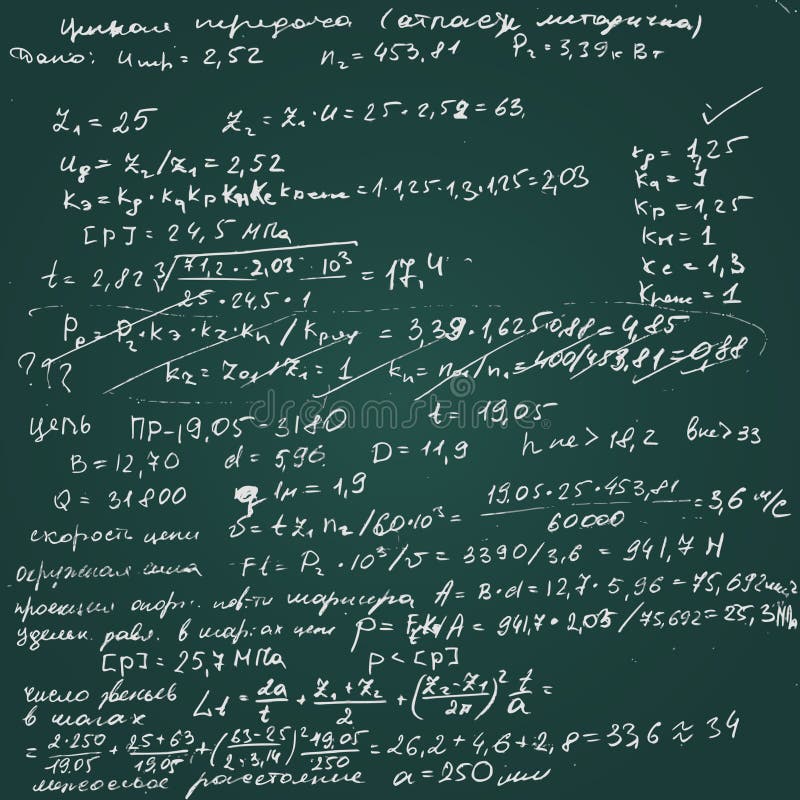 цепная передача (
Дано: Uпр = 2,52 n₂ = 453,81 P₂ = 3,39 кВт
z₁ = 25 z₂ = z₁·u = 25·2,52 = 63
uд = z₂/z₁ = 2,52
kд = 1,25
kа = 1
kр = 1,25
kн = 1
kс = 1,3
kреж = 1
kэ = kд·kа kр kн kс kреж = 1·1,25·1,3·1,25 = 2,03
[p] = 24,5 МПа
t = 2,82 ∛(71,2·2,03·10³ / 25·24,5·1) = 17,4
Pр = P₂·kэ·kz·kn / kряд = 3,39·1,625·0,88 = 4,85
??? kz = z₀₁/z₁ = 1 kn = n₀₁/n₁ = 400/453,81 = 0,88
цепь ПР-19,05-3180 t = 19,05
B = 12,70 d = 5,96 D = 11,9 h не > 18,2 b не > 33
Q = 31800 q 1м = 1,9
скорость цепи υ = t z₁ n₂/60·10³ = 19,05·25·453,81 / 60000 = 3,6 м/с
окружная сила Ft = P₂·10³/υ = 3390/3,6 = 941,7 Н
проекция опорн. пов-ти шарнира A = B·d = 12,7·5,96 = 75,692 мм²
удельн. давл. в шарнах цепи p = Ft Kэ/A = 941,7·2,03/75,692 = 25,3 МПа
[p] = 25,7 МПа p < [p]
число звеньев
в шагах Lt = 2a/t + (z₁+z₂)/2 + ((z₂-z₁)/2π)² t/a =
= 2·250/19,05 + 25+63/19,05 + (63-25/2·3,14)² 19,05/250 = 26,2 + 4,6 + 2,8 = 33,6 ≈ 34
межосевое расстояние a = 250 мм
dreamstime